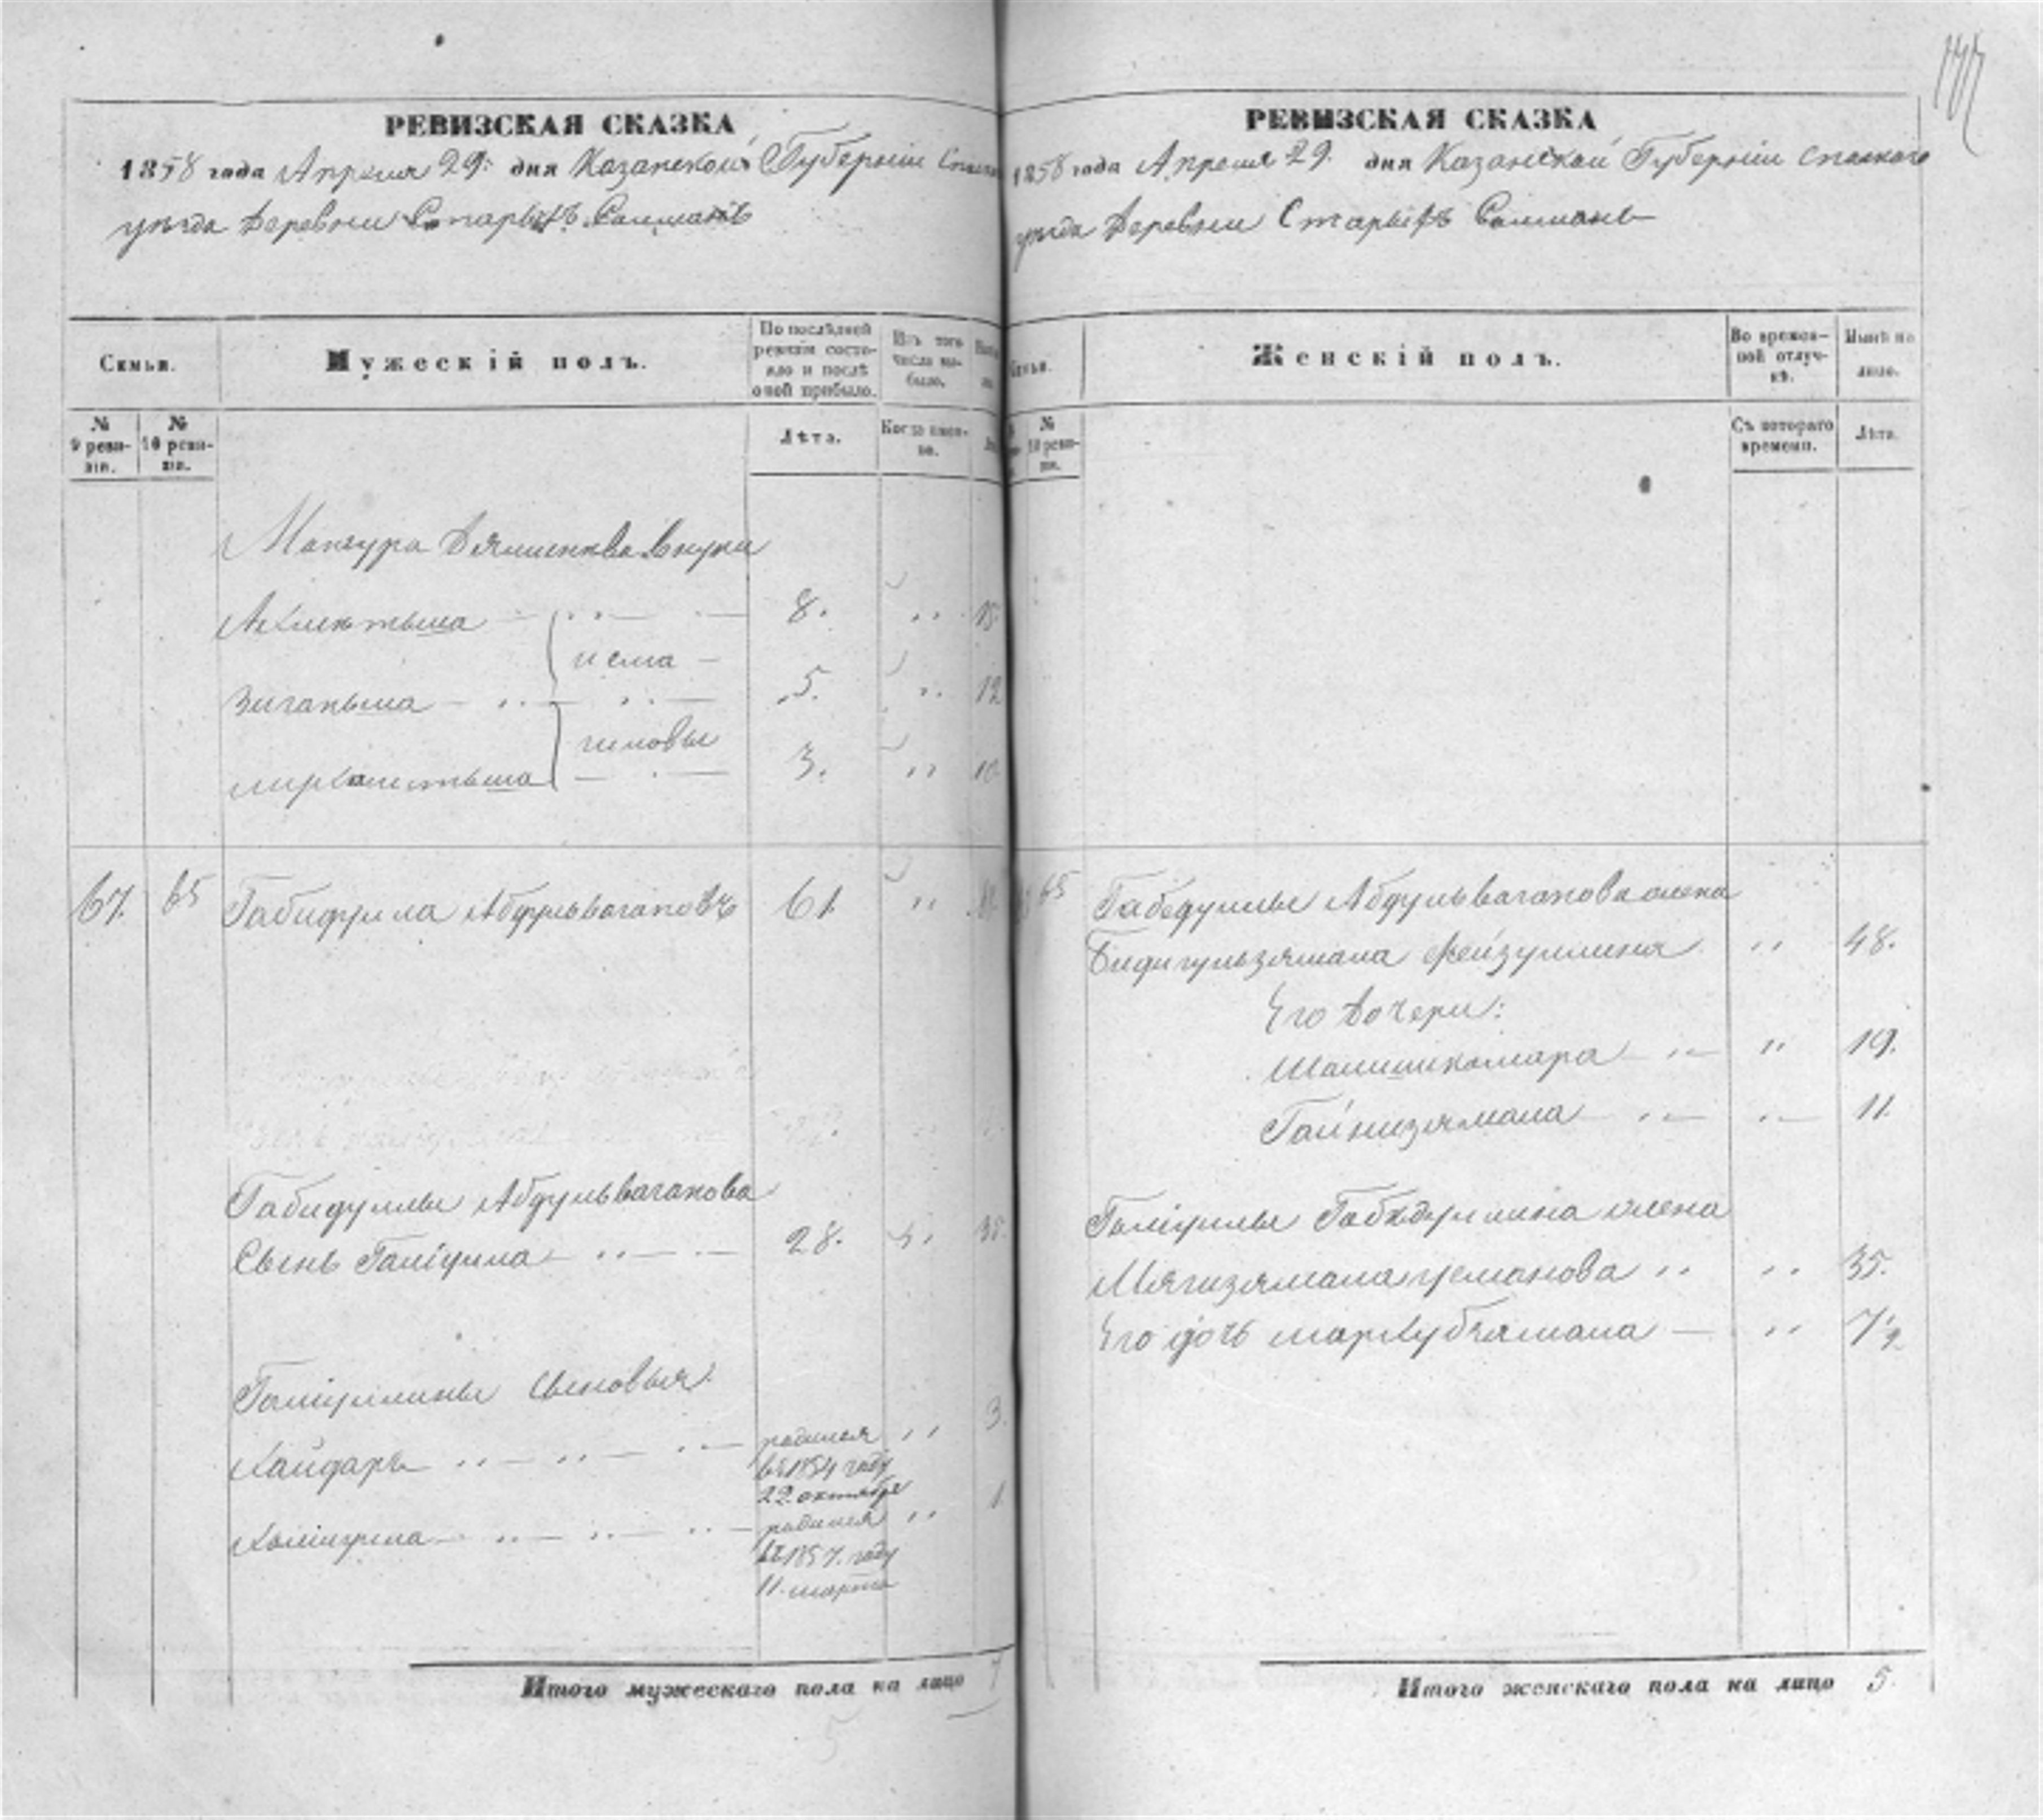 РЕВИЗСКАЯ СКАЗКА
1858 года Апреля 29. дня Казанской Губерніи
уѣзда Деревни Старыхъ Салманъ
Семьи.
Мужескій полъ.
По послѣдней ревизіи состояло и послѣ оной прибыло.
Изъ того числа выбыло.
№ 9 ревизіи.
№ 10 ревизіи.
Лѣта.
Когда именно.
Мансура внуки
8. " 15.
исма-
Зиганьша 5. " 12
гиловы
3. " 10.
67. 65 Габидулла Абдульвагаповъ 61. "
Габидуллы Абдульвагапова
Сынъ Галіулла 28. " 35.
Галіуллины Сыновья:
Хайдаръ родился " 3.
въ 1854 году
22 октября
родился " 1
въ 1857. году
11. марта
Итого мужескаго пола на лицо 7
РЕВИЗСКАЯ СКАЗКА
1858 года Апреля 29. дня Казанской Губерніи Спаского
уѣзда Деревни Старыхъ Салманъ
Семьи.
Женскій полъ.
Во временной отлучкѣ.
Нынѣ на лицо.
№ 10 ревизіи.
Съ котораго времени.
Лѣта.
65 Габедуллы Абдульвагапова жена
Бибигульзямала Фейзуллина " 48.
Его дочери:
Шамшикамара " 19.
Гайнизямала " 11.
Галіуллы Габидуллина жена
Мягизямала Усманова " 35.
Его дочь " 7½
Итого женскаго пола на лицо 5.